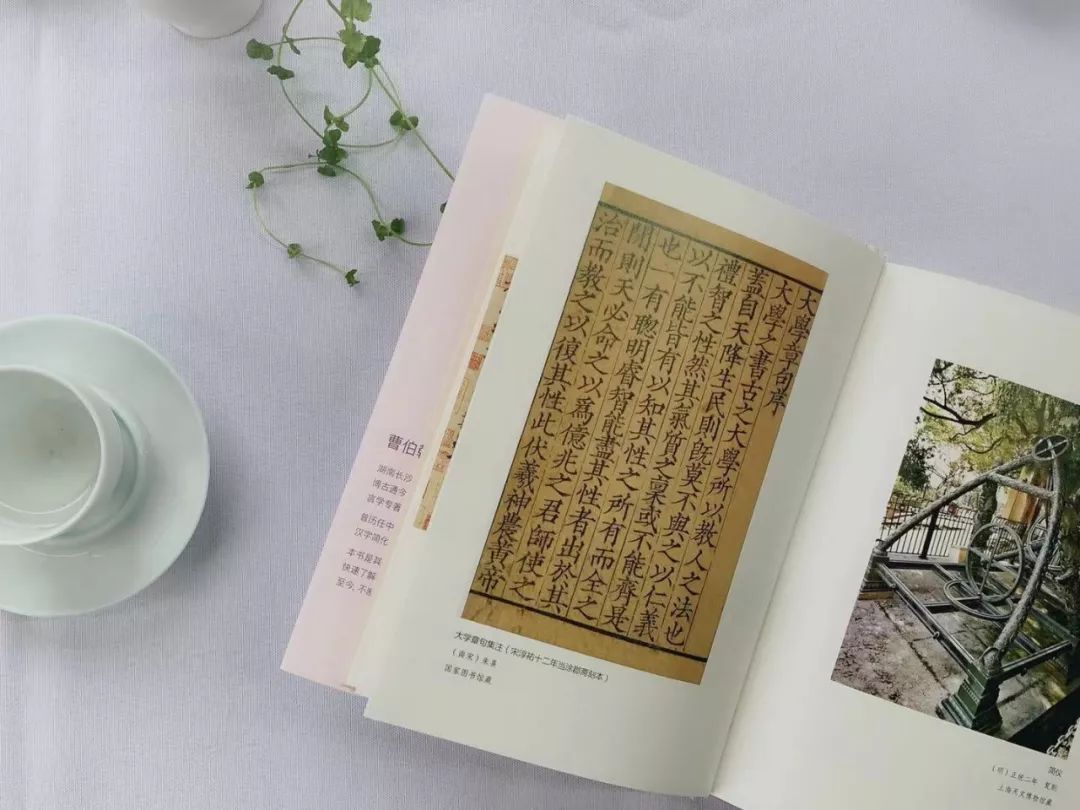 曹伯
湖南长沙
博古通今
言学专著
曾历任中
汉字简化
本书是其
快速了解
至今，不
大學章句序
大學之書古之大學所以教人之法也
蓋自天降生民則旣莫不與之以仁義
禮智之性然其氣質之稟或不能齊是
以不能皆有以知其性之所有而全之
也一有聰明睿智能盡其性者出於其
閒則天必命之以爲億兆之君師使之
治而教之以復其性此伏羲神農黃帝
大学章句集注（宋淳祐十二年当涂郡斋刻本）
（南宋）朱熹
国家图书馆藏
简仪
（明）正统二年 复制
上海天文博物馆藏